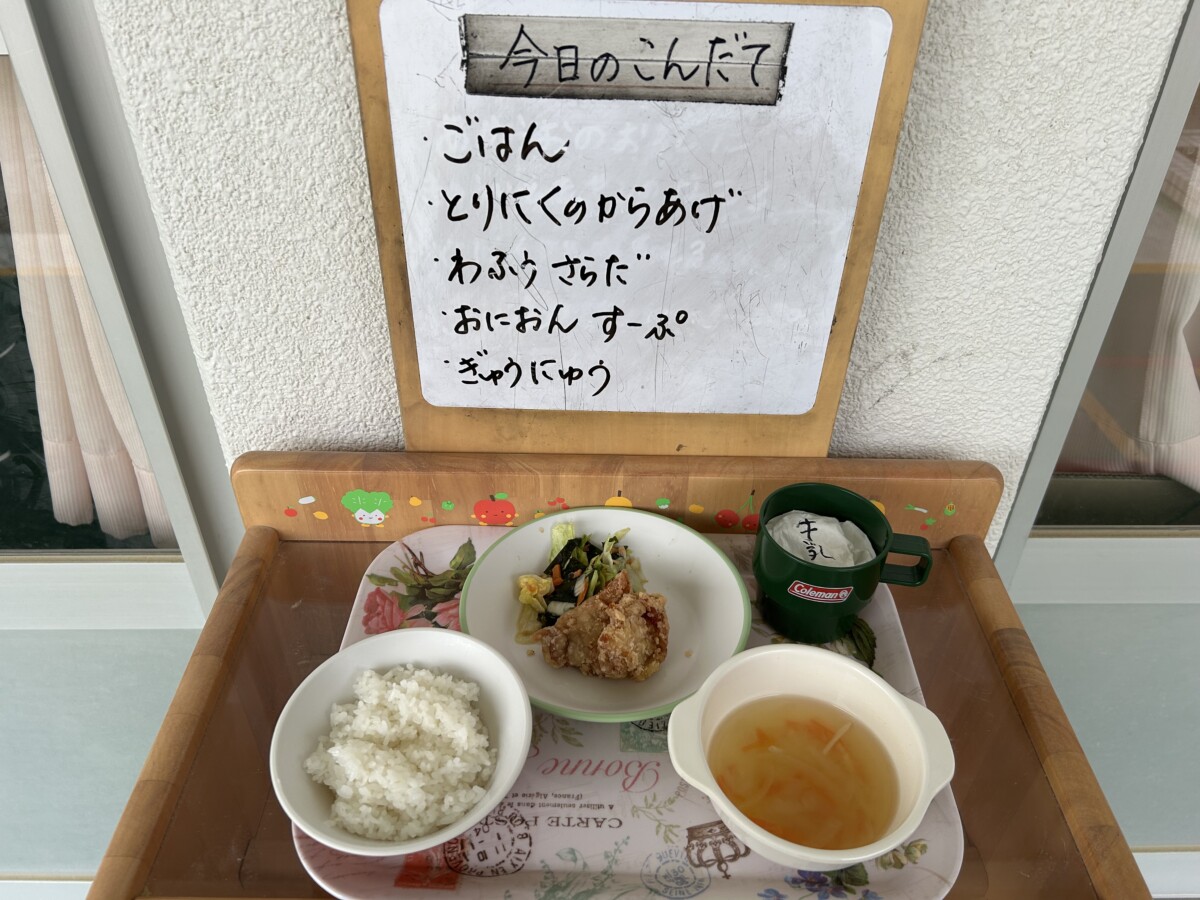 今日のこんだて
・ごはん
・とりにくのからあげ
・わふう さらだ
・おにおん すーぷ
・ぎゅうにゅう
牛乳
Coleman
Bonne
(France, Algérie et
A utiliser seulement dans le
CARTE POST